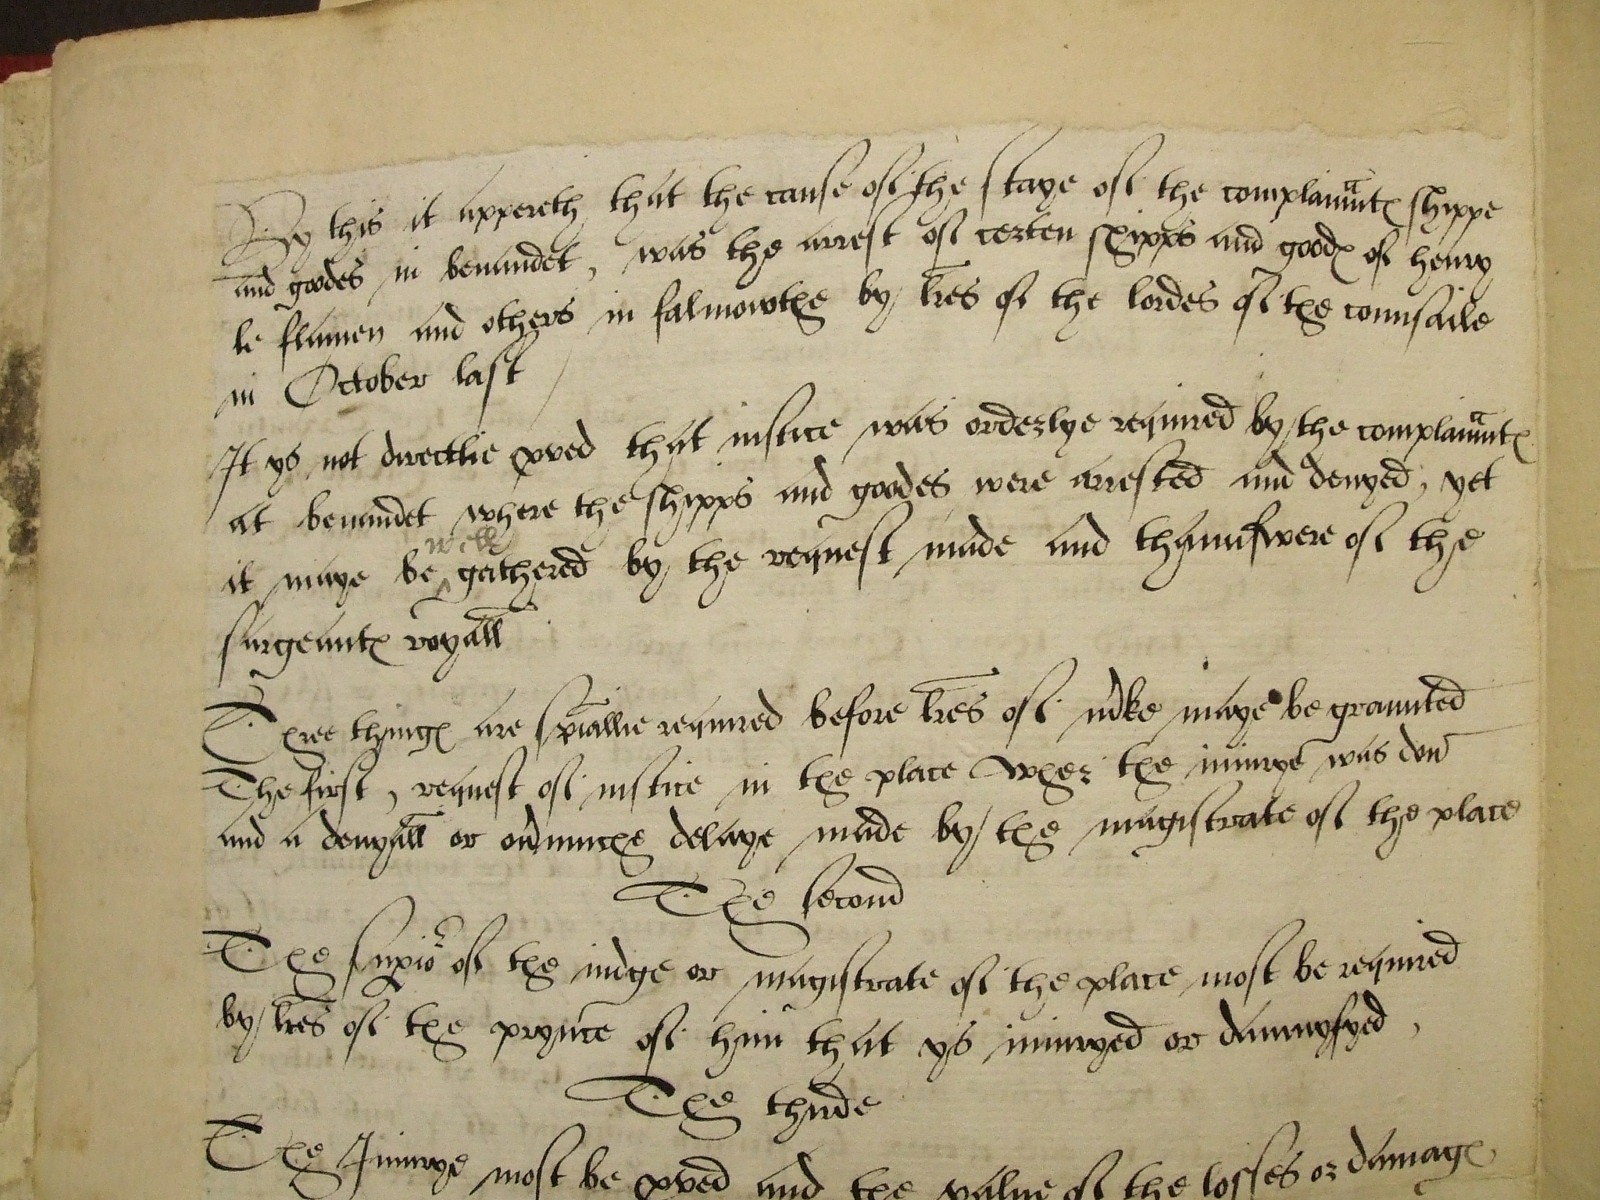 By this it appereth that the cause of the staye of the complainauntes shippe
and goodes in benaudet, was the arrest of certen shipps and goodes of henry
le flamen and others in falmowthe by lres of the lordes of the counsaile
in October last
It ys not directlie proved that iustice was orderlye required by the complainauntes
at benaudet where the shipps and goodes were arrested and denyed, yet
it maye be well gathered by the request made and thaunswere of the
sargeauntes royall
Three thinges are speciallie required before lres of mrke maye be graunted
The first, request of iustice in the place wher the iniurye was don
and a denyall or ovrmuche delaye made by the magistrate of the place
The second
The superior of the iudge or magistrate of the place most be required
by lres of the prynce of him that ys iniuryed or damnyfyed,
The thirde
The Iniurye most be proved and the value of the losses or damages